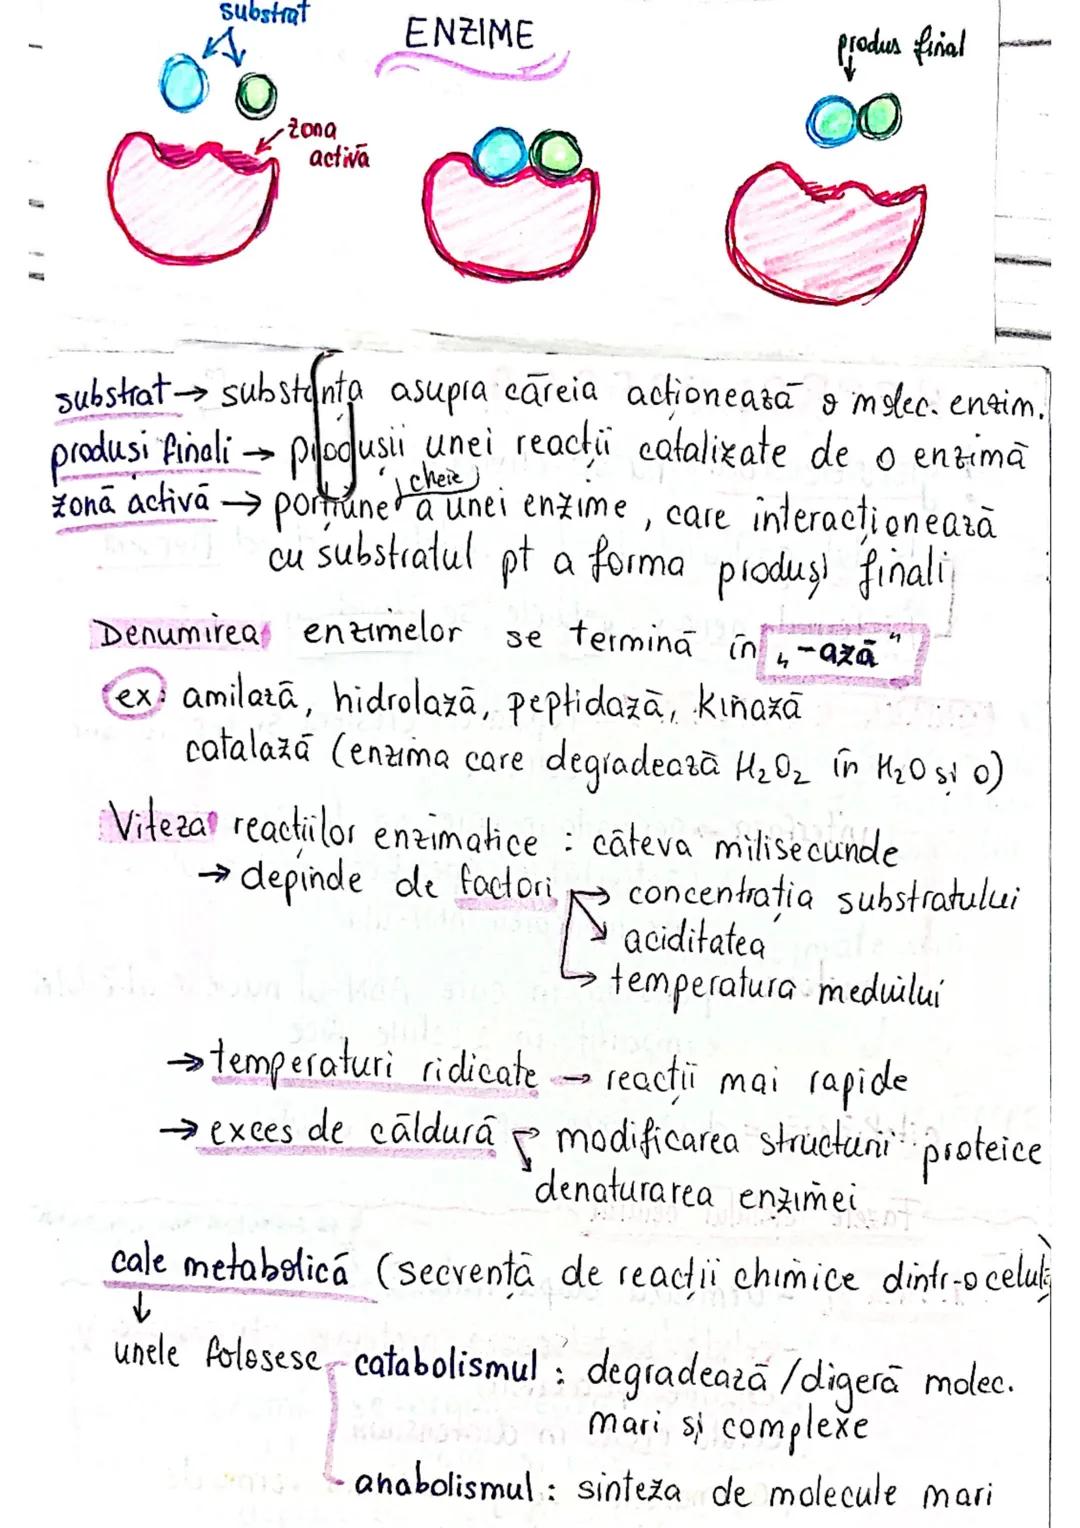 substrat
ENZIME
produs final
zona
activă
substrat → substanța asupra căreia acționează o molec. enzim.
produsi finali → produsii unei reacții catalizate de o enzimă
zonă activă → porțiune cheie a unei enzime, care interacționează
cu substratul pt a forma produși finali
Denumirea enzimelor se termină în „-ază"
ex: amilază, hidrolază, peptidază, kinază
catalază (enzima care degradează H₂O₂ în H₂O și O)
Viteza reacțiilor enzimatice : câteva milisecunde
→ depinde de factori → concentrația substratului
→ aciditatea
→ temperatura mediului
→ temperaturi ridicate → reacții mai rapide
→ exces de căldură → modificarea structurii proteice
denaturarea enzimei
cale metabolică (secvență de reacții chimice dintr-o celulă
↓
unele folosesc catabolismul : degradează / digeră molec.
mari și complexe
anabolismul : sinteza de molecule mari